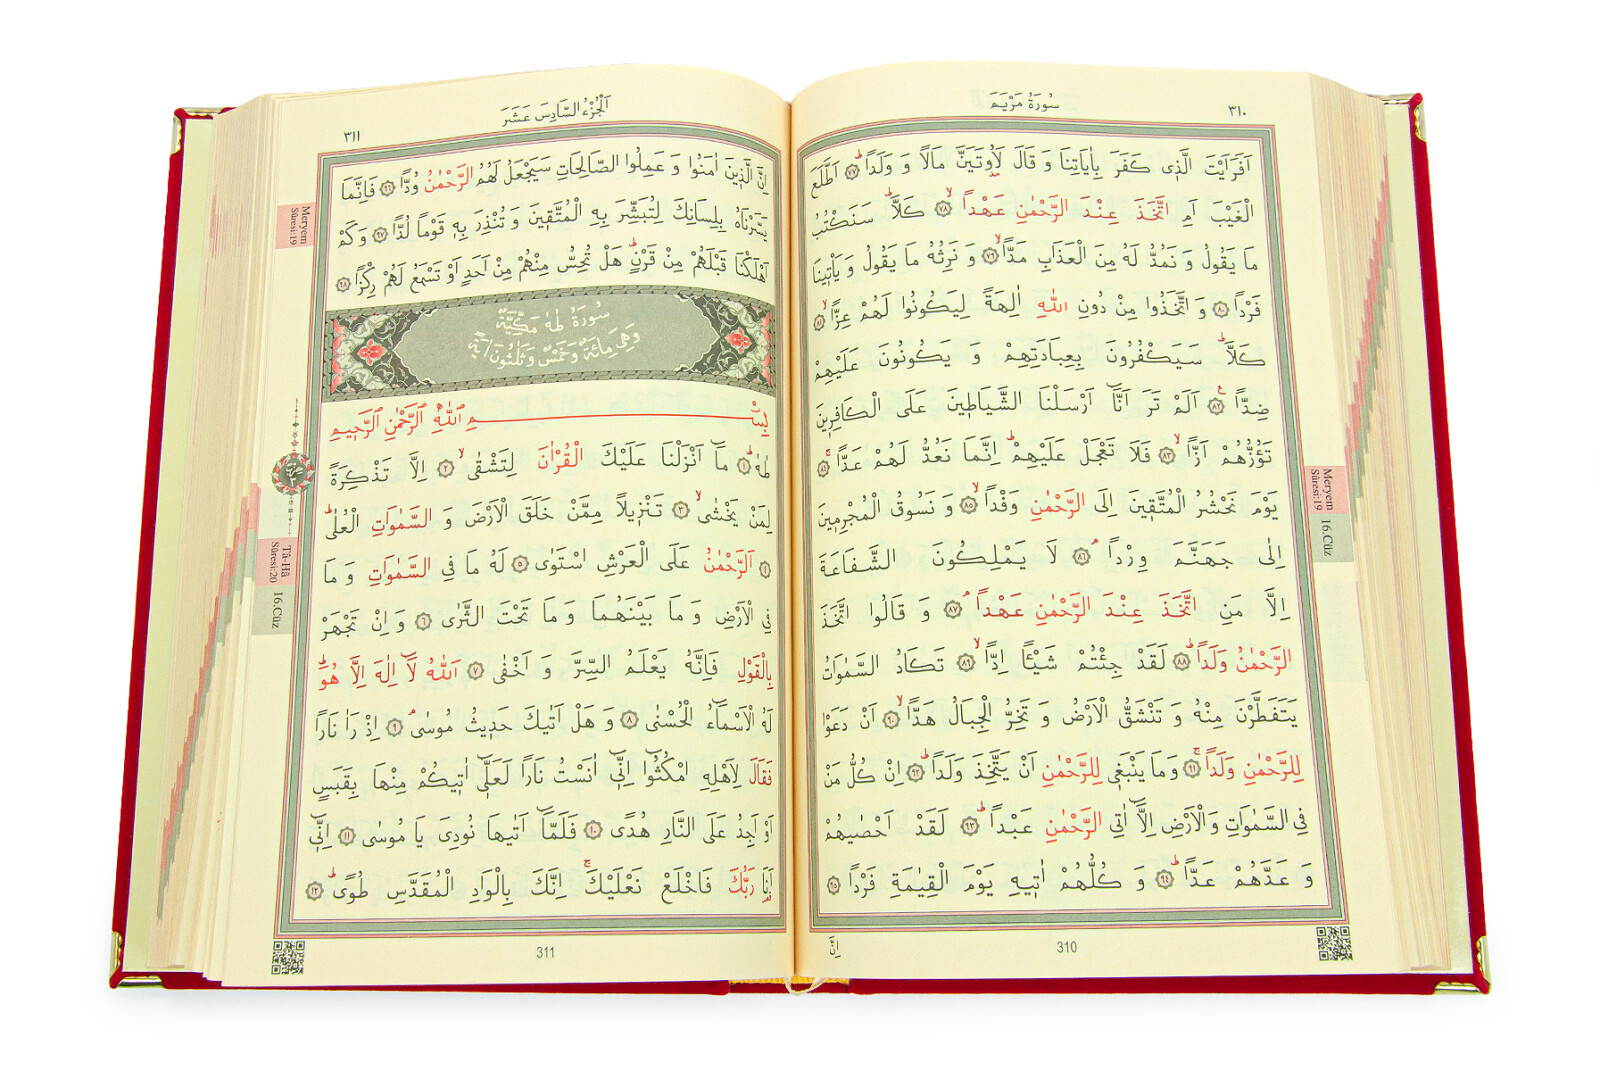 سُورَةُ مَرْيَمَ
٣١٠
اَفَرَاَيْتَ الَّذٖى كَفَرَ بِاٰيَاتِنَا وَ قَالَ لَاُوتَيَنَّ مَالًا وَ وَلَدًاؕ ﴿٧٧﴾ اَطَّلَعَ
الْغَيْبَ اَمِ اتَّخَذَ عِنْدَ الرَّحْمٰنِ عَهْدًاۙ ﴿٧٨﴾ كَلَّاؕ سَنَكْتُبُ
مَا يَقُولُ وَ نَمُدُّ لَهُ مِنَ الْعَذَابِ مَدًّاۙ ﴿٧٩﴾ وَ نَرِثُهُ مَا يَقُولُ وَ يَاْتٖينَا
فَرْدًا ﴿٨٠﴾ وَ اتَّخَذُوا مِنْ دُونِ اللّٰهِ اٰلِهَةً لِيَكُونُوا لَهُمْ عِزًّاۙ ﴿٨١﴾
كَلَّاؕ سَيَكْفُرُونَ بِعِبَادَتِهِمْ وَ يَكُونُونَ عَلَيْهِمْ
ضِدًّاࣖ ﴿٨٢﴾ اَلَمْ تَرَ اَنَّٓا اَرْسَلْنَا الشَّيَاطٖينَ عَلَى الْكَافِرٖينَ
تَؤُزُّهُمْ اَزًّاۙ ﴿٨٣﴾ فَلَا تَعْجَلْ عَلَيْهِمْؕ اِنَّمَا نَعُدُّ لَهُمْ عَدًّاۚ ﴿٨٤﴾
يَوْمَ نَحْشُرُ الْمُتَّقٖينَ اِلَى الرَّحْمٰنِ وَفْدًاۙ ﴿٨٥﴾ وَ نَسُوقُ الْمُجْرِمٖينَ
اِلٰى جَهَنَّمَ وِرْدًاۢ ﴿٨٦﴾ لَا يَمْلِكُونَ الشَّفَاعَةَ
اِلَّا مَنِ اتَّخَذَ عِنْدَ الرَّحْمٰنِ عَهْدًاۢ ﴿٨٧﴾ وَ قَالُوا اتَّخَذَ
الرَّحْمٰنُ وَلَدًاؕ ﴿٨٨﴾ لَقَدْ جِئْتُمْ شَيْئًا اِدًّاۙ ﴿٨٩﴾ تَكَادُ السَّمٰوَاتُ
يَتَفَطَّرْنَ مِنْهُ وَ تَنْشَقُّ الْاَرْضُ وَ تَخِرُّ الْجِبَالُ هَدًّاۙ ﴿٩٠﴾ اَنْ دَعَوْا
لِلرَّحْمٰنِ وَلَدًاۚ ﴿٩١﴾ وَمَا يَنْبَغٖى لِلرَّحْمٰنِ اَنْ يَتَّخِذَ وَلَدًاؕ ﴿٩٢﴾ اِنْ كُلُّ مَنْ
فِى السَّمٰوَاتِ وَالْاَرْضِ اِلَّٓا اٰتِى الرَّحْمٰنِ عَبْدًاؕ ﴿٩٣﴾ لَقَدْ اَحْصٰيهُمْ
وَ عَدَّهُمْ عَدًّاؕ ﴿٩٤﴾ وَ كُلُّهُمْ اٰتٖيهِ يَوْمَ الْقِيٰمَةِ فَرْدًا ﴿٩٥﴾
310
اِنَّ
Meryem
Sûresi:19
16.Cüz
اَلْجُزْءُ السَّادِسَ عَشَرَ
٣١١
اِنَّ الَّذٖينَ اٰمَنُوا وَ عَمِلُوا الصَّالِحَاتِ سَيَجْعَلُ لَهُمُ الرَّحْمٰنُ وُدًّا ﴿٩٦﴾ فَاِنَّمَا
يَسَّرْنَاهُ بِلِسَانِكَ لِتُبَشِّرَ بِهِ الْمُتَّقٖينَ وَ تُنْذِرَ بِهٖ قَوْمًا لُدًّا ﴿٩٧﴾ وَ كَمْ
اَهْلَكْنَا قَبْلَهُمْ مِنْ قَرْنٍؕ هَلْ تُحِسُّ مِنْهُمْ مِنْ اَحَدٍ اَوْ تَسْمَعُ لَهُمْ رِكْزًا ﴿٩٨﴾
سُورَةُ طٰهٰ مَكِّيَّةٌ
وَهِىَ مِائَةٌ وَخَمْسٌ وَثَلٰثُونَ اٰيَةً
بِسْمِ اللّٰهِ الرَّحْمٰنِ الرَّحٖيمِ
طٰهٰؕ ﴿١﴾ مَٓا اَنْزَلْنَا عَلَيْكَ الْقُرْاٰنَ لِتَشْقٰىۙ ﴿٢﴾ اِلَّا تَذْكِرَةً
لِمَنْ يَخْشٰىۙ ﴿٣﴾ تَنْزٖيلًا مِمَّنْ خَلَقَ الْاَرْضَ وَ السَّمٰوَاتِ الْعُلٰىؕ
﴿٤﴾ اَلرَّحْمٰنُ عَلَى الْعَرْشِ اسْتَوٰى ﴿٥﴾ لَهُ مَا فِى السَّمٰوَاتِ وَ مَا
فِى الْاَرْضِ وَ مَا بَيْنَهُمَا وَ مَا تَحْتَ الثَّرٰى ﴿٦﴾ وَ اِنْ تَجْهَرْ
بِالْقَوْلِ فَاِنَّهُ يَعْلَمُ السِّرَّ وَ اَخْفٰى ﴿٧﴾ اَللّٰهُ لَٓا اِلٰهَ اِلَّا هُوَؕ
لَهُ الْاَسْمَٓاءُ الْحُسْنٰى ﴿٨﴾ وَ هَلْ اَتٰيكَ حَدٖيثُ مُوسٰىۢ ﴿٩﴾ اِذْ رَاٰ نَارًا
فَقَالَ لِاَهْلِهِ امْكُثُٓوا اِنّٖٓى اٰنَسْتُ نَارًا لَعَلّٖٓى اٰتٖيكُمْ مِنْهَا بِقَبَسٍ
اَوْ اَجِدُ عَلَى النَّارِ هُدًى ﴿١٠﴾ فَلَمَّٓا اَتٰيهَا نُودِىَ يَا مُوسٰى ﴿١١﴾ اِنّٖٓى
اَنَا رَبُّكَ فَاخْلَعْ نَعْلَيْكَۚ اِنَّكَ بِالْوَادِ الْمُقَدَّسِ طُوًىؕ ﴿١٢﴾
311
Meryem
Sûresi:19
Tâ-Hâ
Sûresi:20
16.Cüz